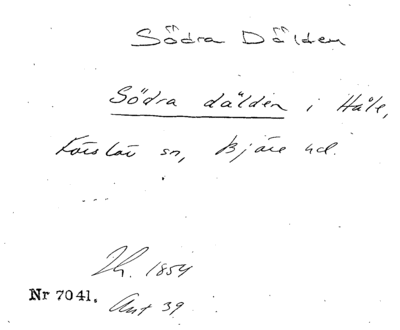 Södra Dälden
Södra dälden i Håle,
Förslöv sn, Bjäre hd.
Lh. 1854
Nr 7041. Ant 39